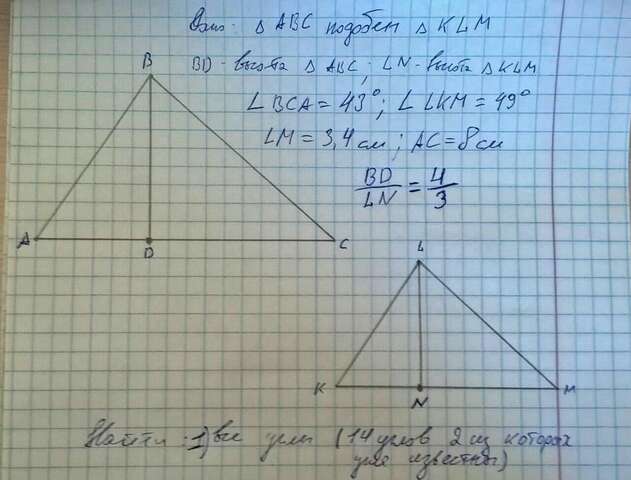 Дано: △ ABC подобен △ KLM
BD - высота △ ABC; LN - высота △ KLM
∠ BCA = 43°; ∠ LKM = 49°
LM = 3,4 см; AC = 8 см
BD/LN = 4/3
B
A
D
C
L
K
N
M
Найти: 1) все углы (14 углов 2 из которых
уже известны)